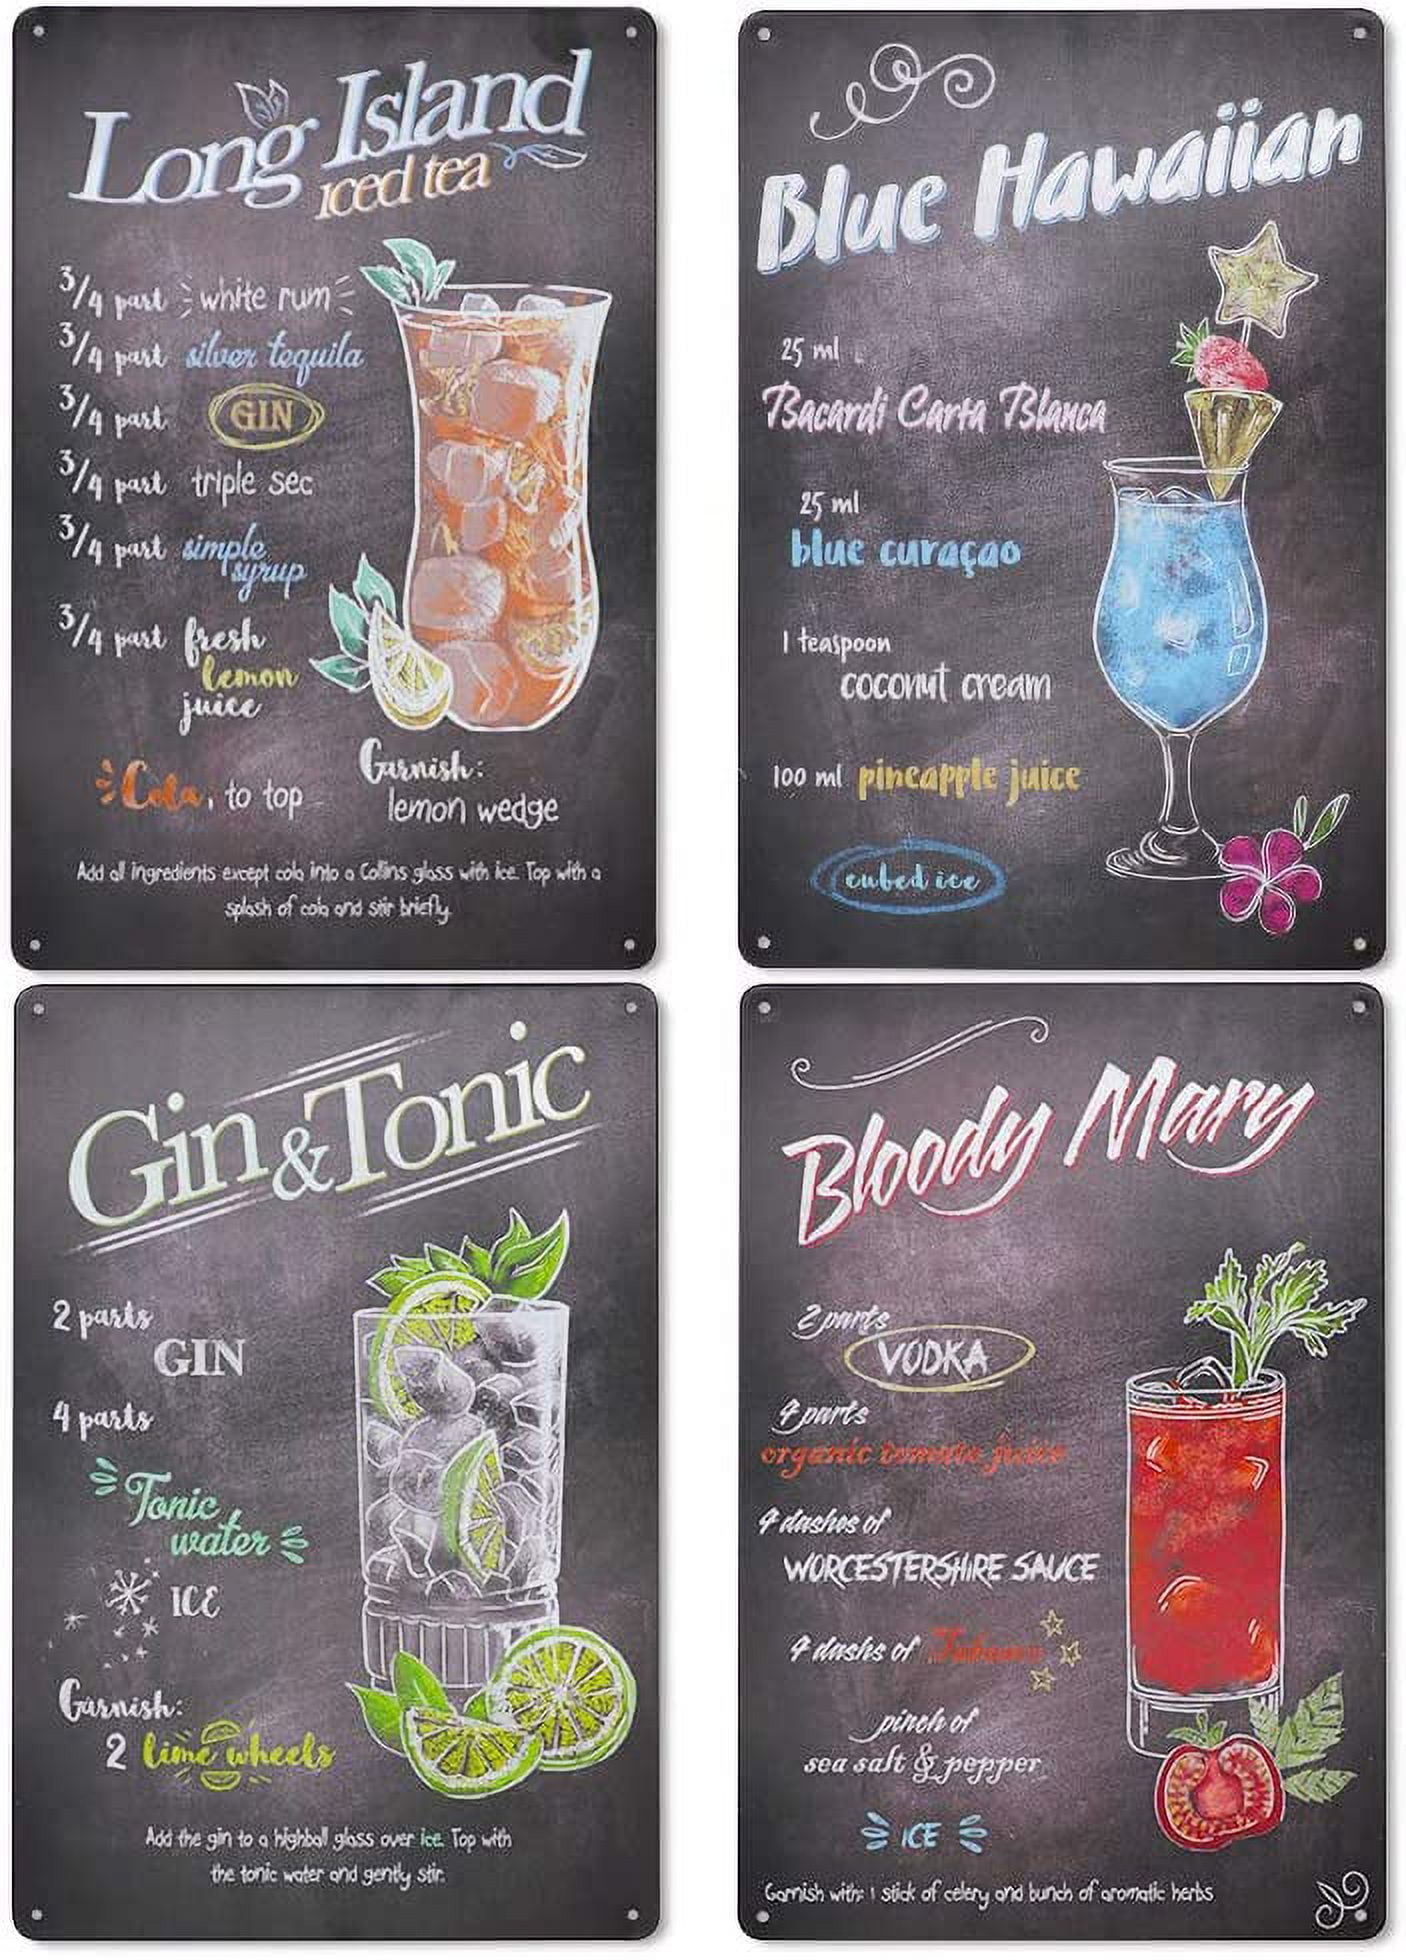 Long Island
iced tea
3/4 part white rum
3/4 part silver tequila
3/4 part GIN
3/4 part triple sec
3/4 part simple
syrup
3/4 part fresh
lemon
juice
Cola, to top
Garnish:
lemon wedge
Add all ingredients except cola into a Collins glass with ice. Top with a
splash of cola and stir briefly.
Blue Hawaiian
25 ml
Bacardi Carta Blanca
25 ml
blue curaçao
1 teaspoon
coconut cream
100 ml pineapple juice
cubed ice
Gin & Tonic
2 parts
GIN
4 parts
Tonic
water
ICE
Garnish:
2 lime wheels
Add the gin to a highball glass over ice. Top with
the tonic water and gently stir.
Bloody Mary
2 parts
VODKA
4 parts
organic tomato juice
4 dashes of
WORCESTERSHIRE SAUCE
4 dashs of Tabasco
pinch of
sea salt & pepper
ICE
Garnish with: 1 stick of celery and bunch of aromatic herbs